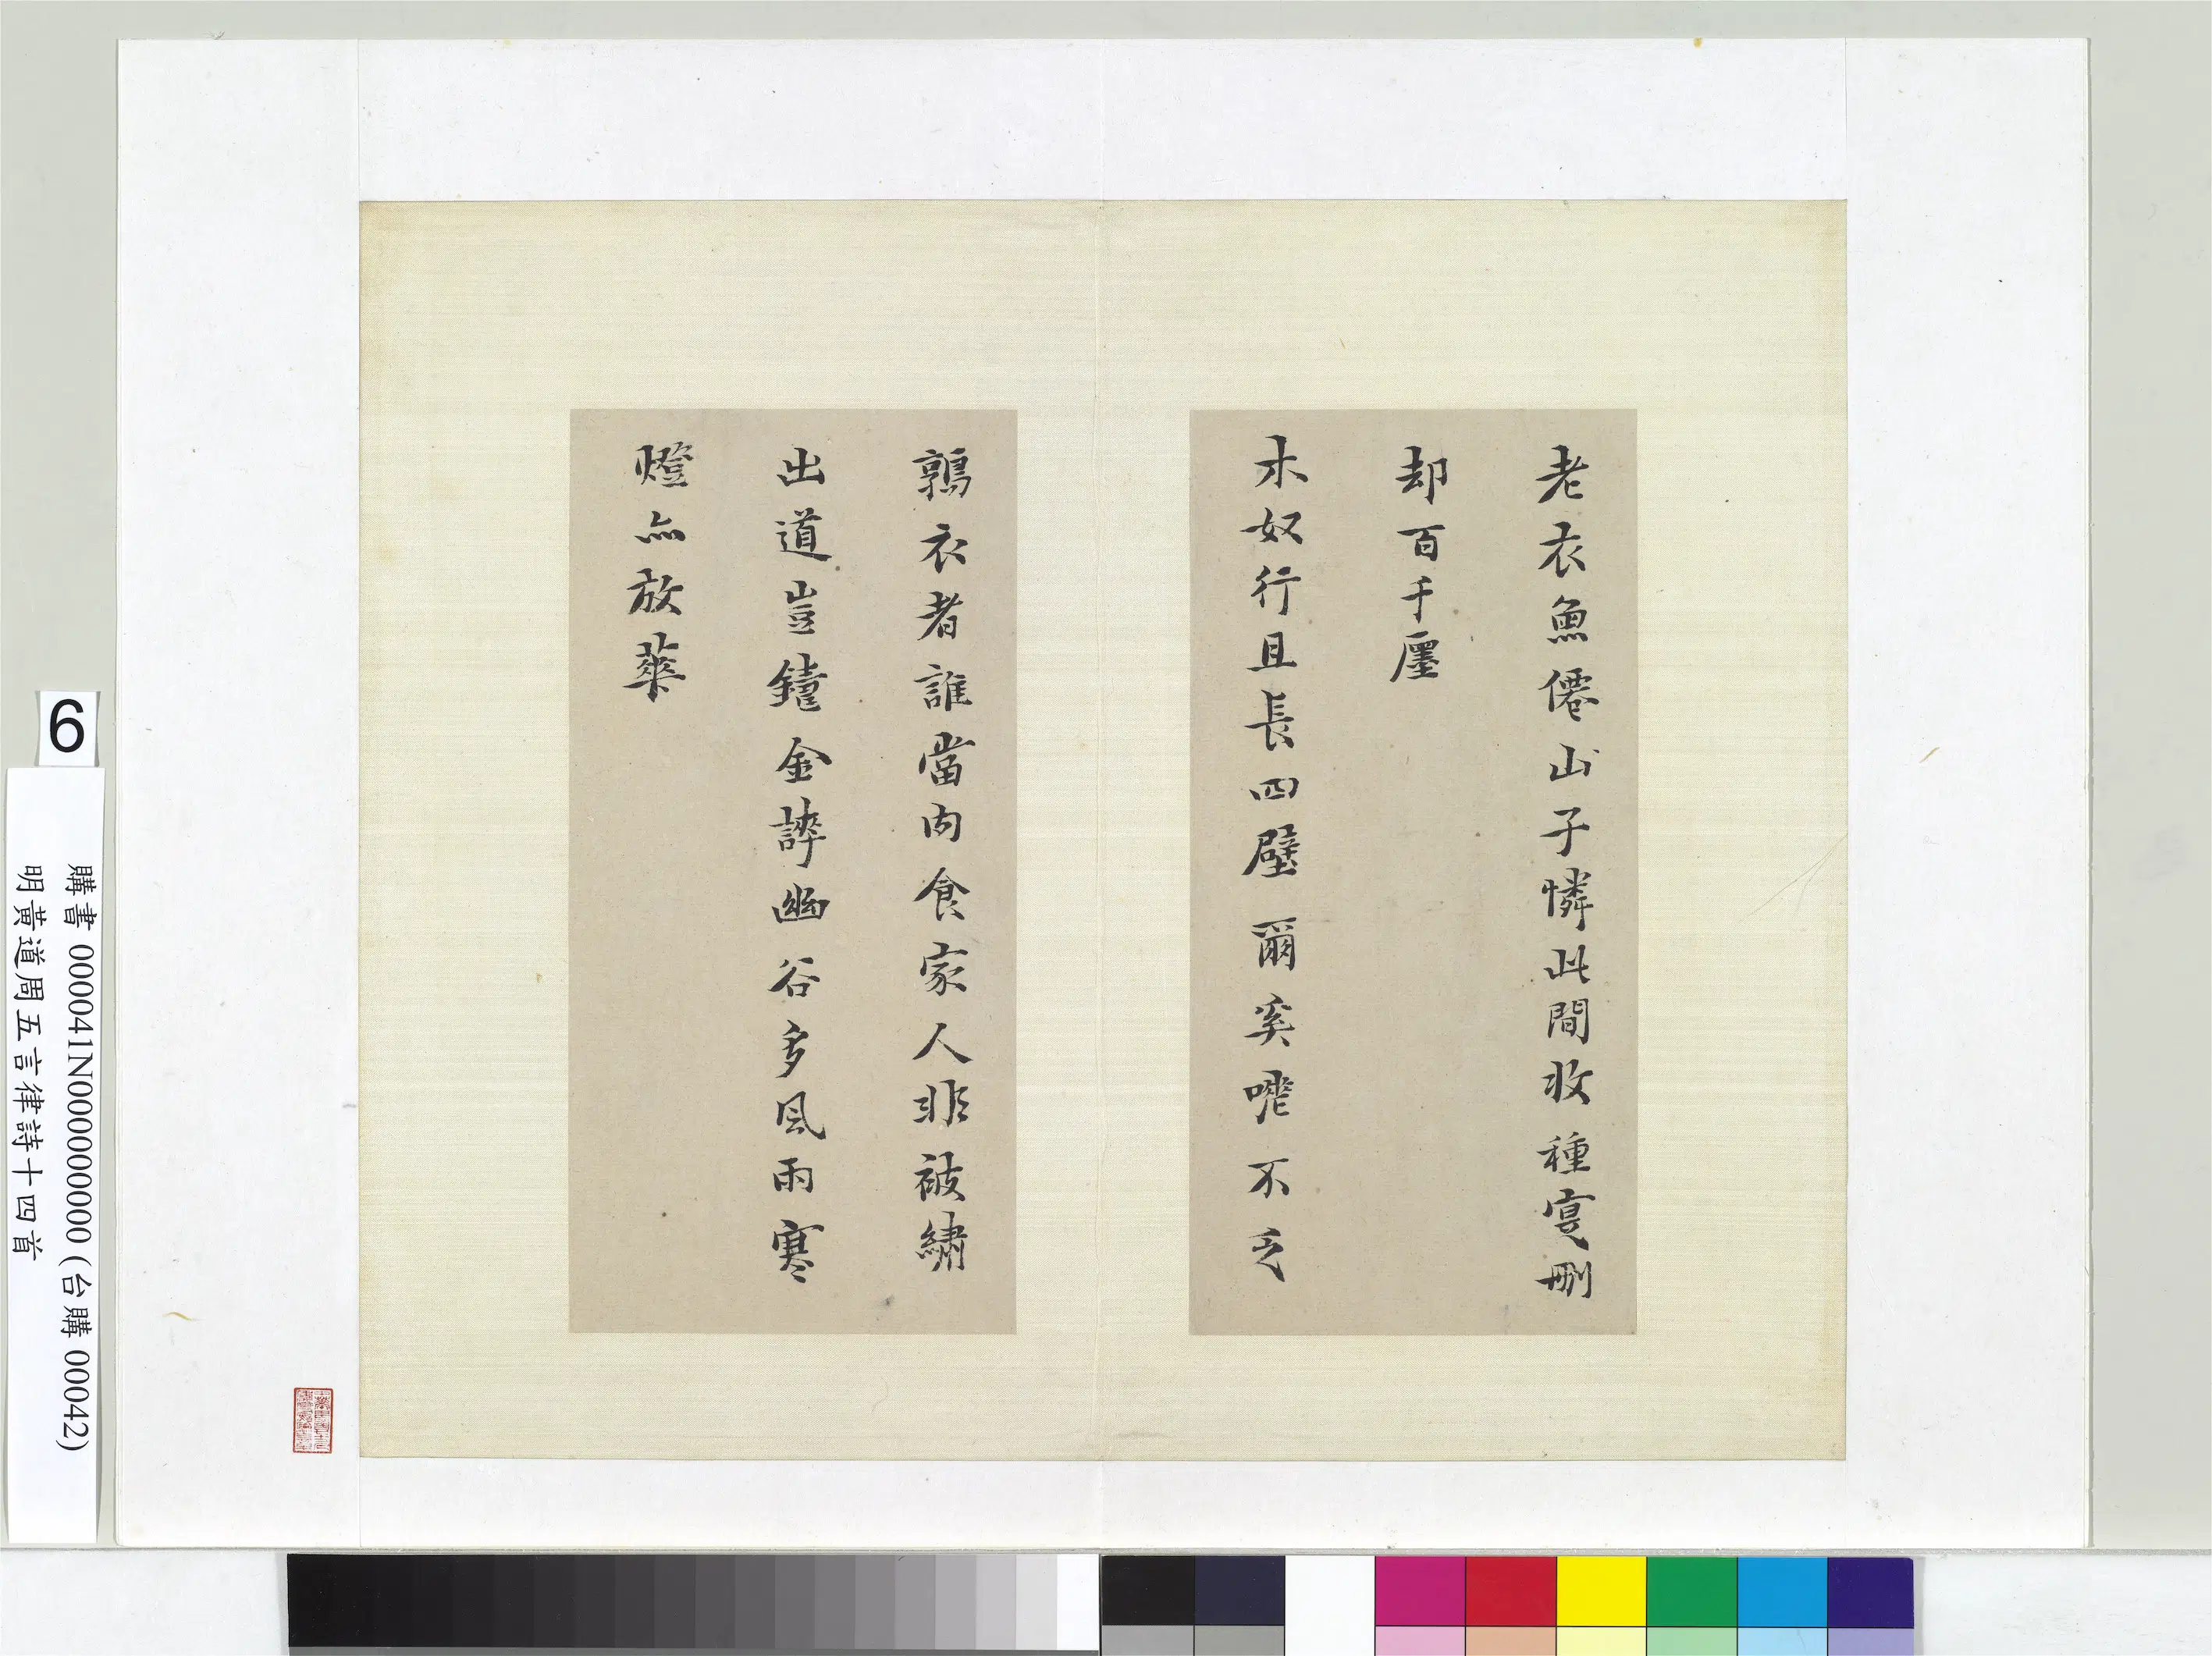 老衣魚僊山子憐此間收種寔刪
却百千廛
木奴行且長四壁爾奚嘡不乏
鶉衣者誰當肉食家人非被繡
出道豈鐃金誶幽谷多風雨寒
燈亦放華
6
購書 000041N000000000 (台購 00042)
明黃道周五言律詩十四首